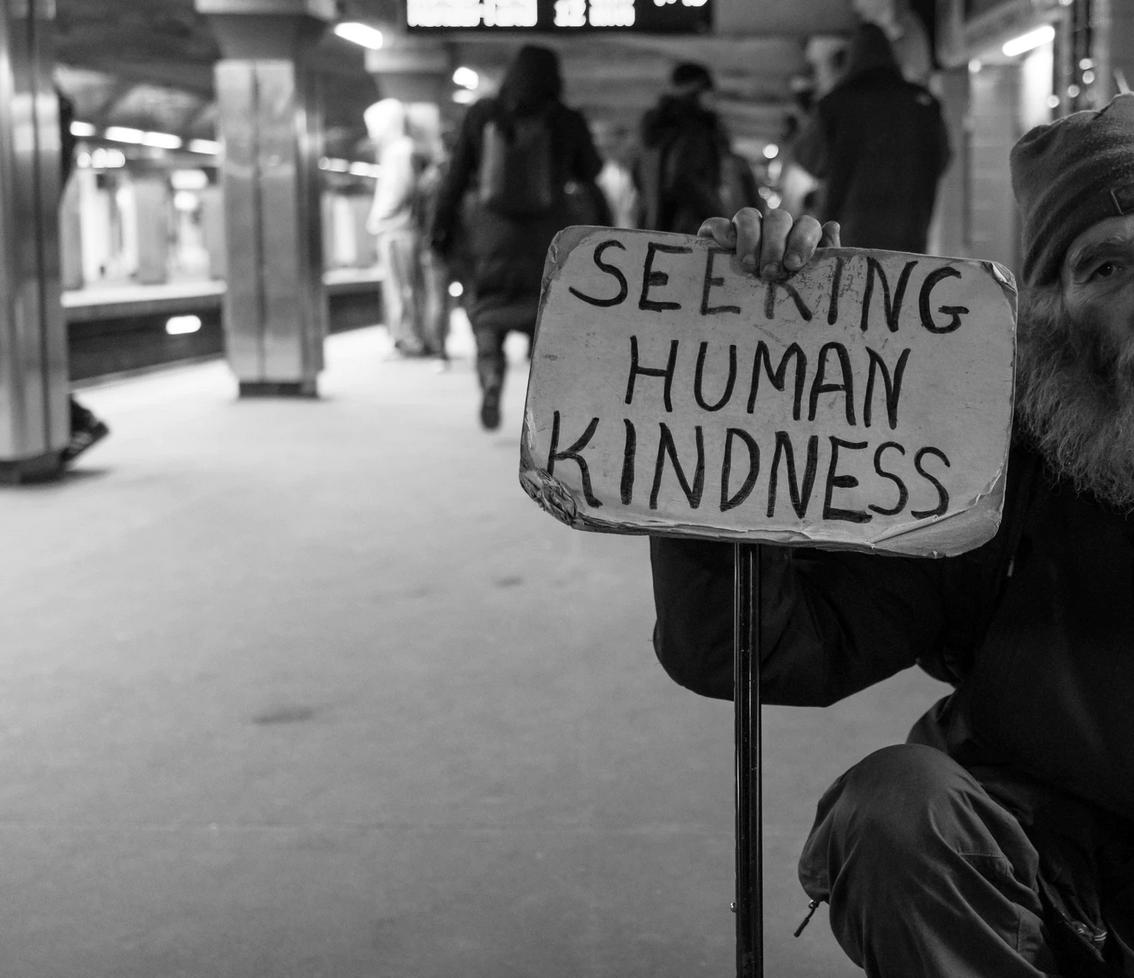 SEEKING
HUMAN
KINDNESS